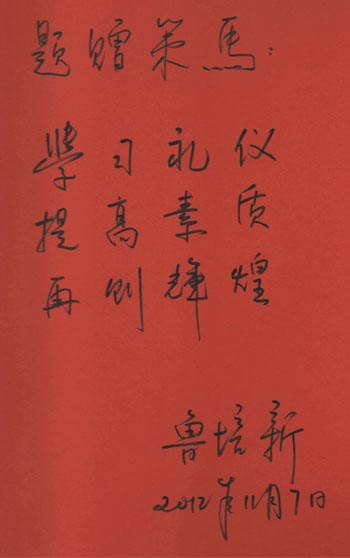 题赠策馬:
学习礼仪
提高素质
再创辉煌
鲁培新
2012年11月7日